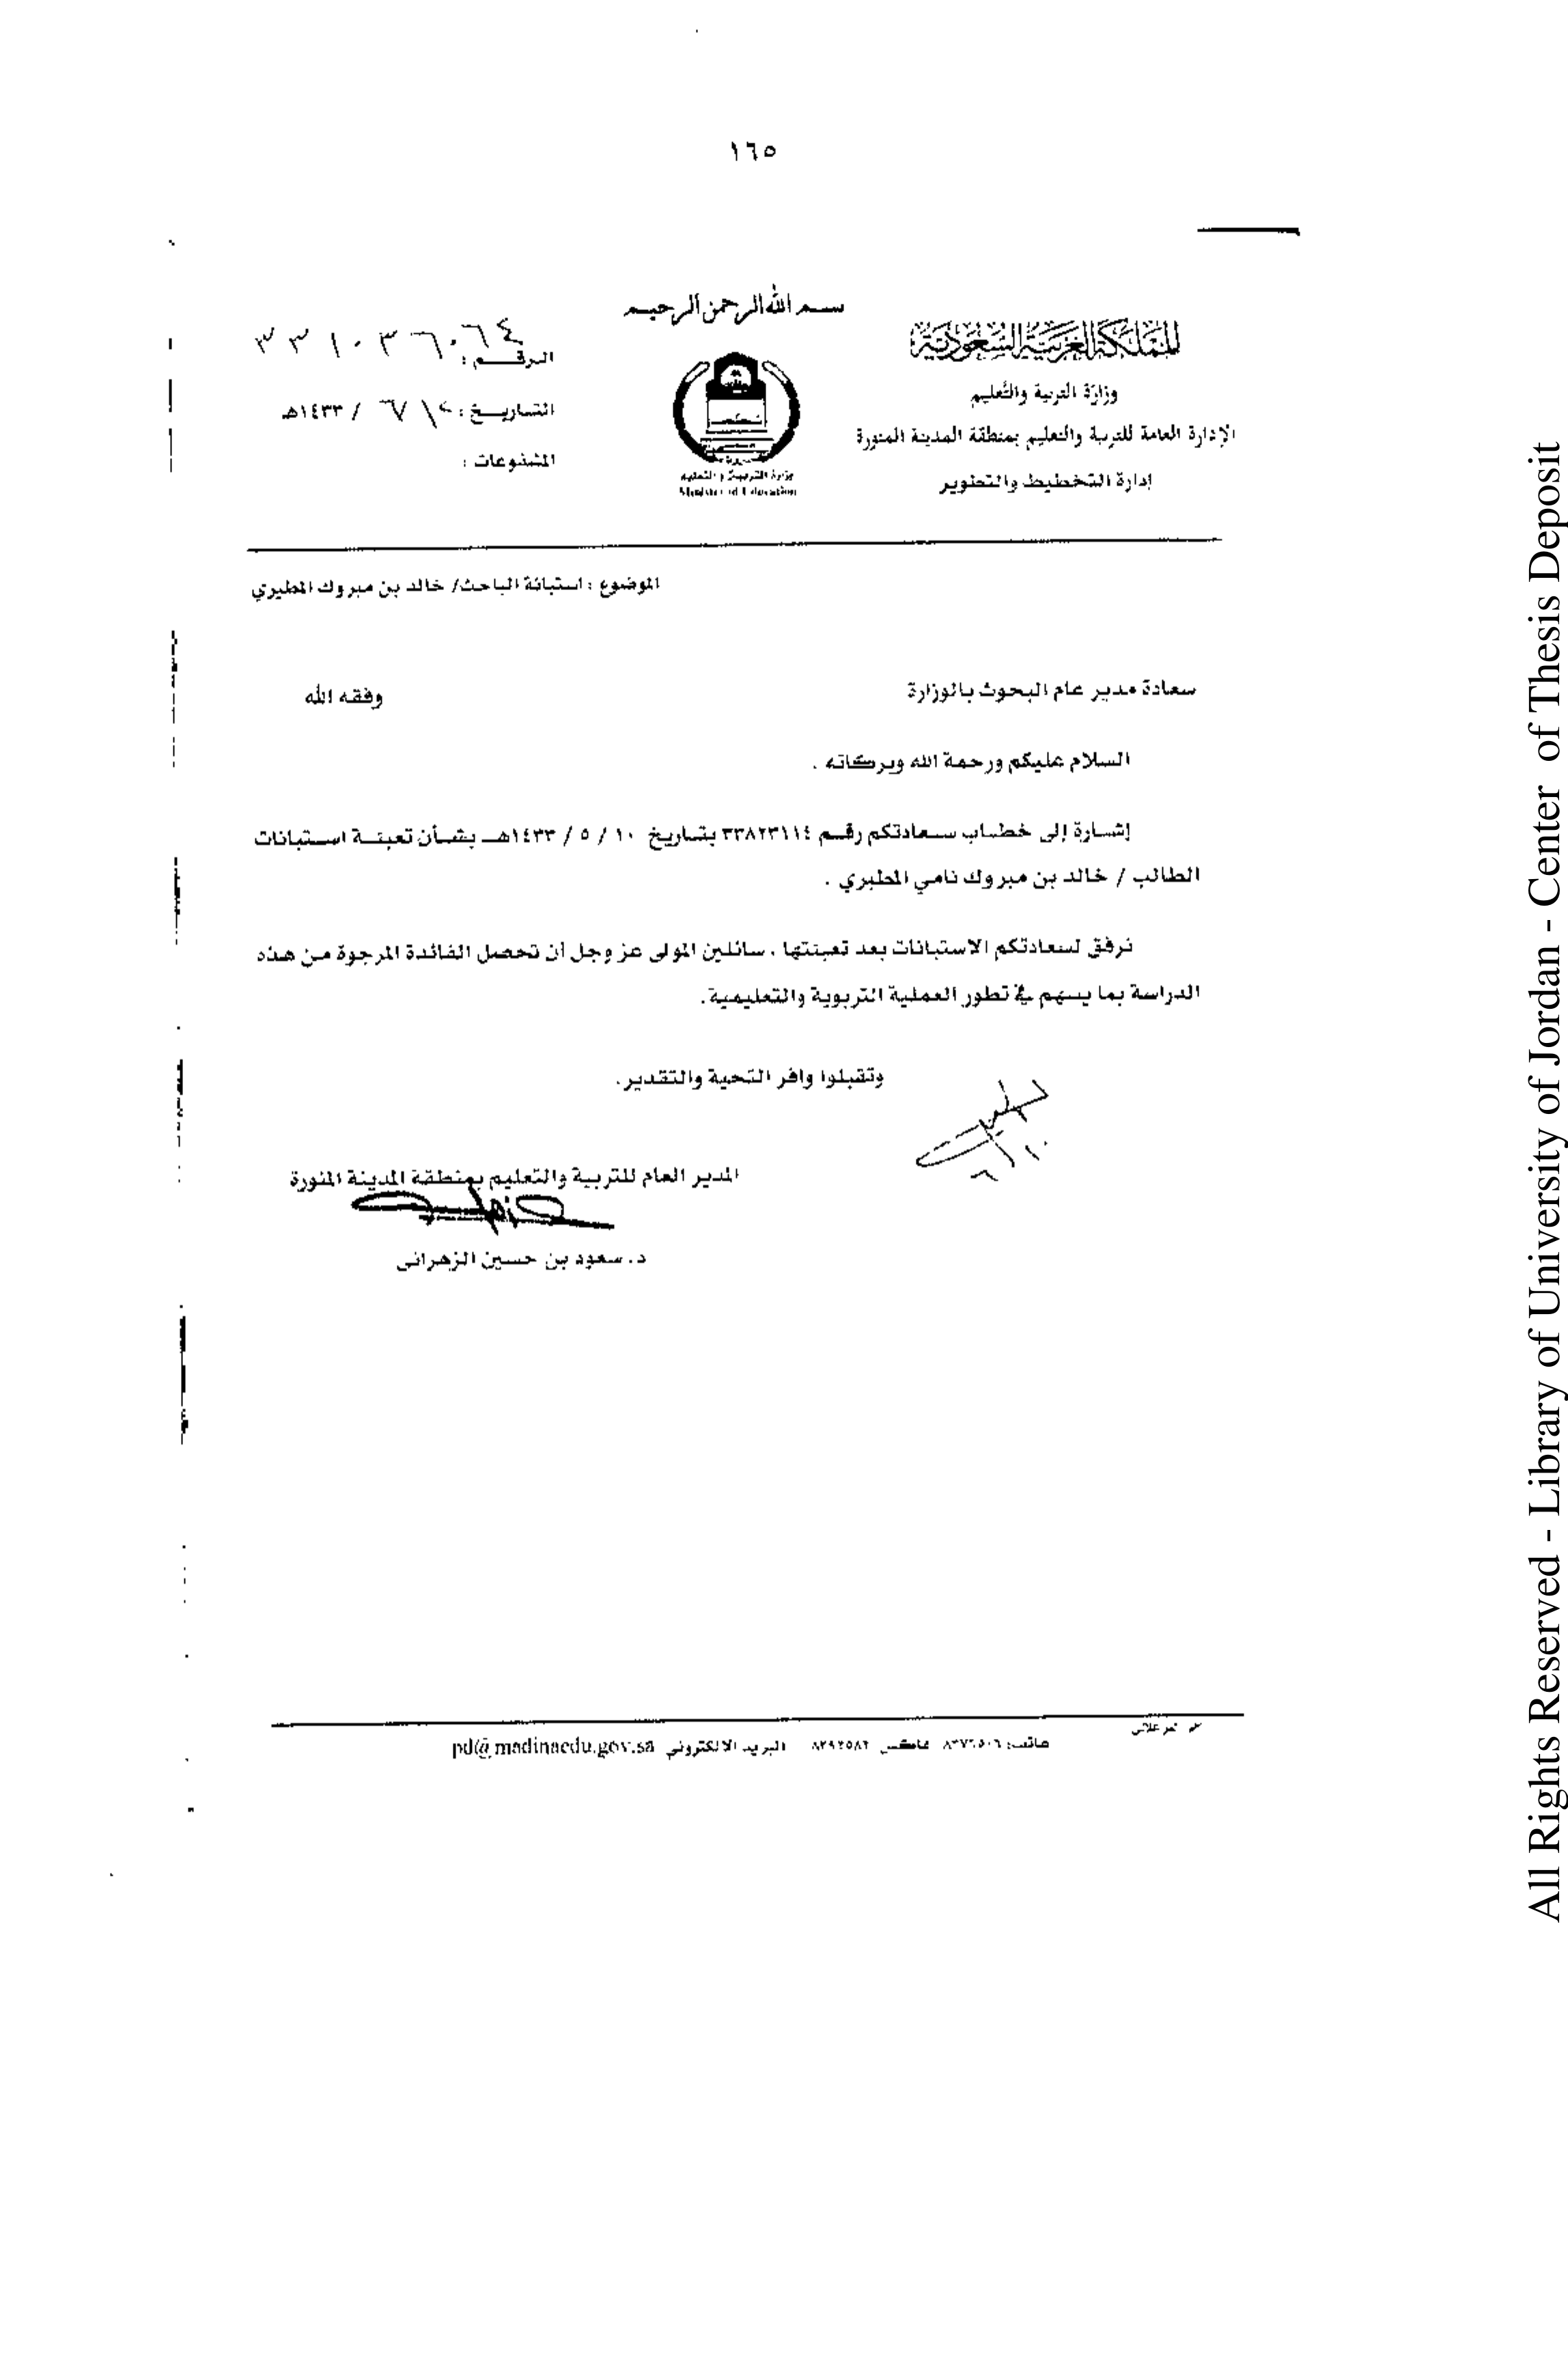 ١٦٥
بسم الله الرحمن الرحيم
المملكة العربية السعودية
وزارة التربية والتعليم
الإدارة العامة للتربية والتعليم بمنطقة المدينة المنورة
إدارة التخطيط والتطوير
وزارة التربية والتعليم
Ministry of Education
الرقم : ٣٣١٠٣٦٠٦٤
التاريخ : / ٦ / ١٤٣٣هـ
المشفوعات :
الموضوع : استبانة الباحث/ خالد بن مبروك المطيري
سعادة مدير عام البحوث بالوزارة وفقه الله
السلام عليكم ورحمة الله وبركاته .
إشارة إلى خطاب سعادتكم رقم ٣٣٨٢٣١١٤ بتاريخ ١٠ / ٥ / ١٤٣٣هـ بشأن تعبئة استبانات
الطالب / خالد بن مبروك نامي المطيري .
نرفق لسعادتكم الاستبانات بعد تعبئتها ، سائلين المولى عز وجل أن تحصل الفائدة المرجوة من هذه
الدراسة بما يسهم في تطور العملية التربوية والتعليمية.
وتقبلوا وافر التحية والتقدير.
المدير العام للتربية والتعليم بمنطقة المدينة المنورة
د. سعود بن حسين الزهراني
هاتف: فاكس ٨٢٩٢٥٨٢ البريد الالكتروني pd@madinaedu.gov.sa
All Rights Reserved - Library of University of Jordan - Center of Thesis Deposit